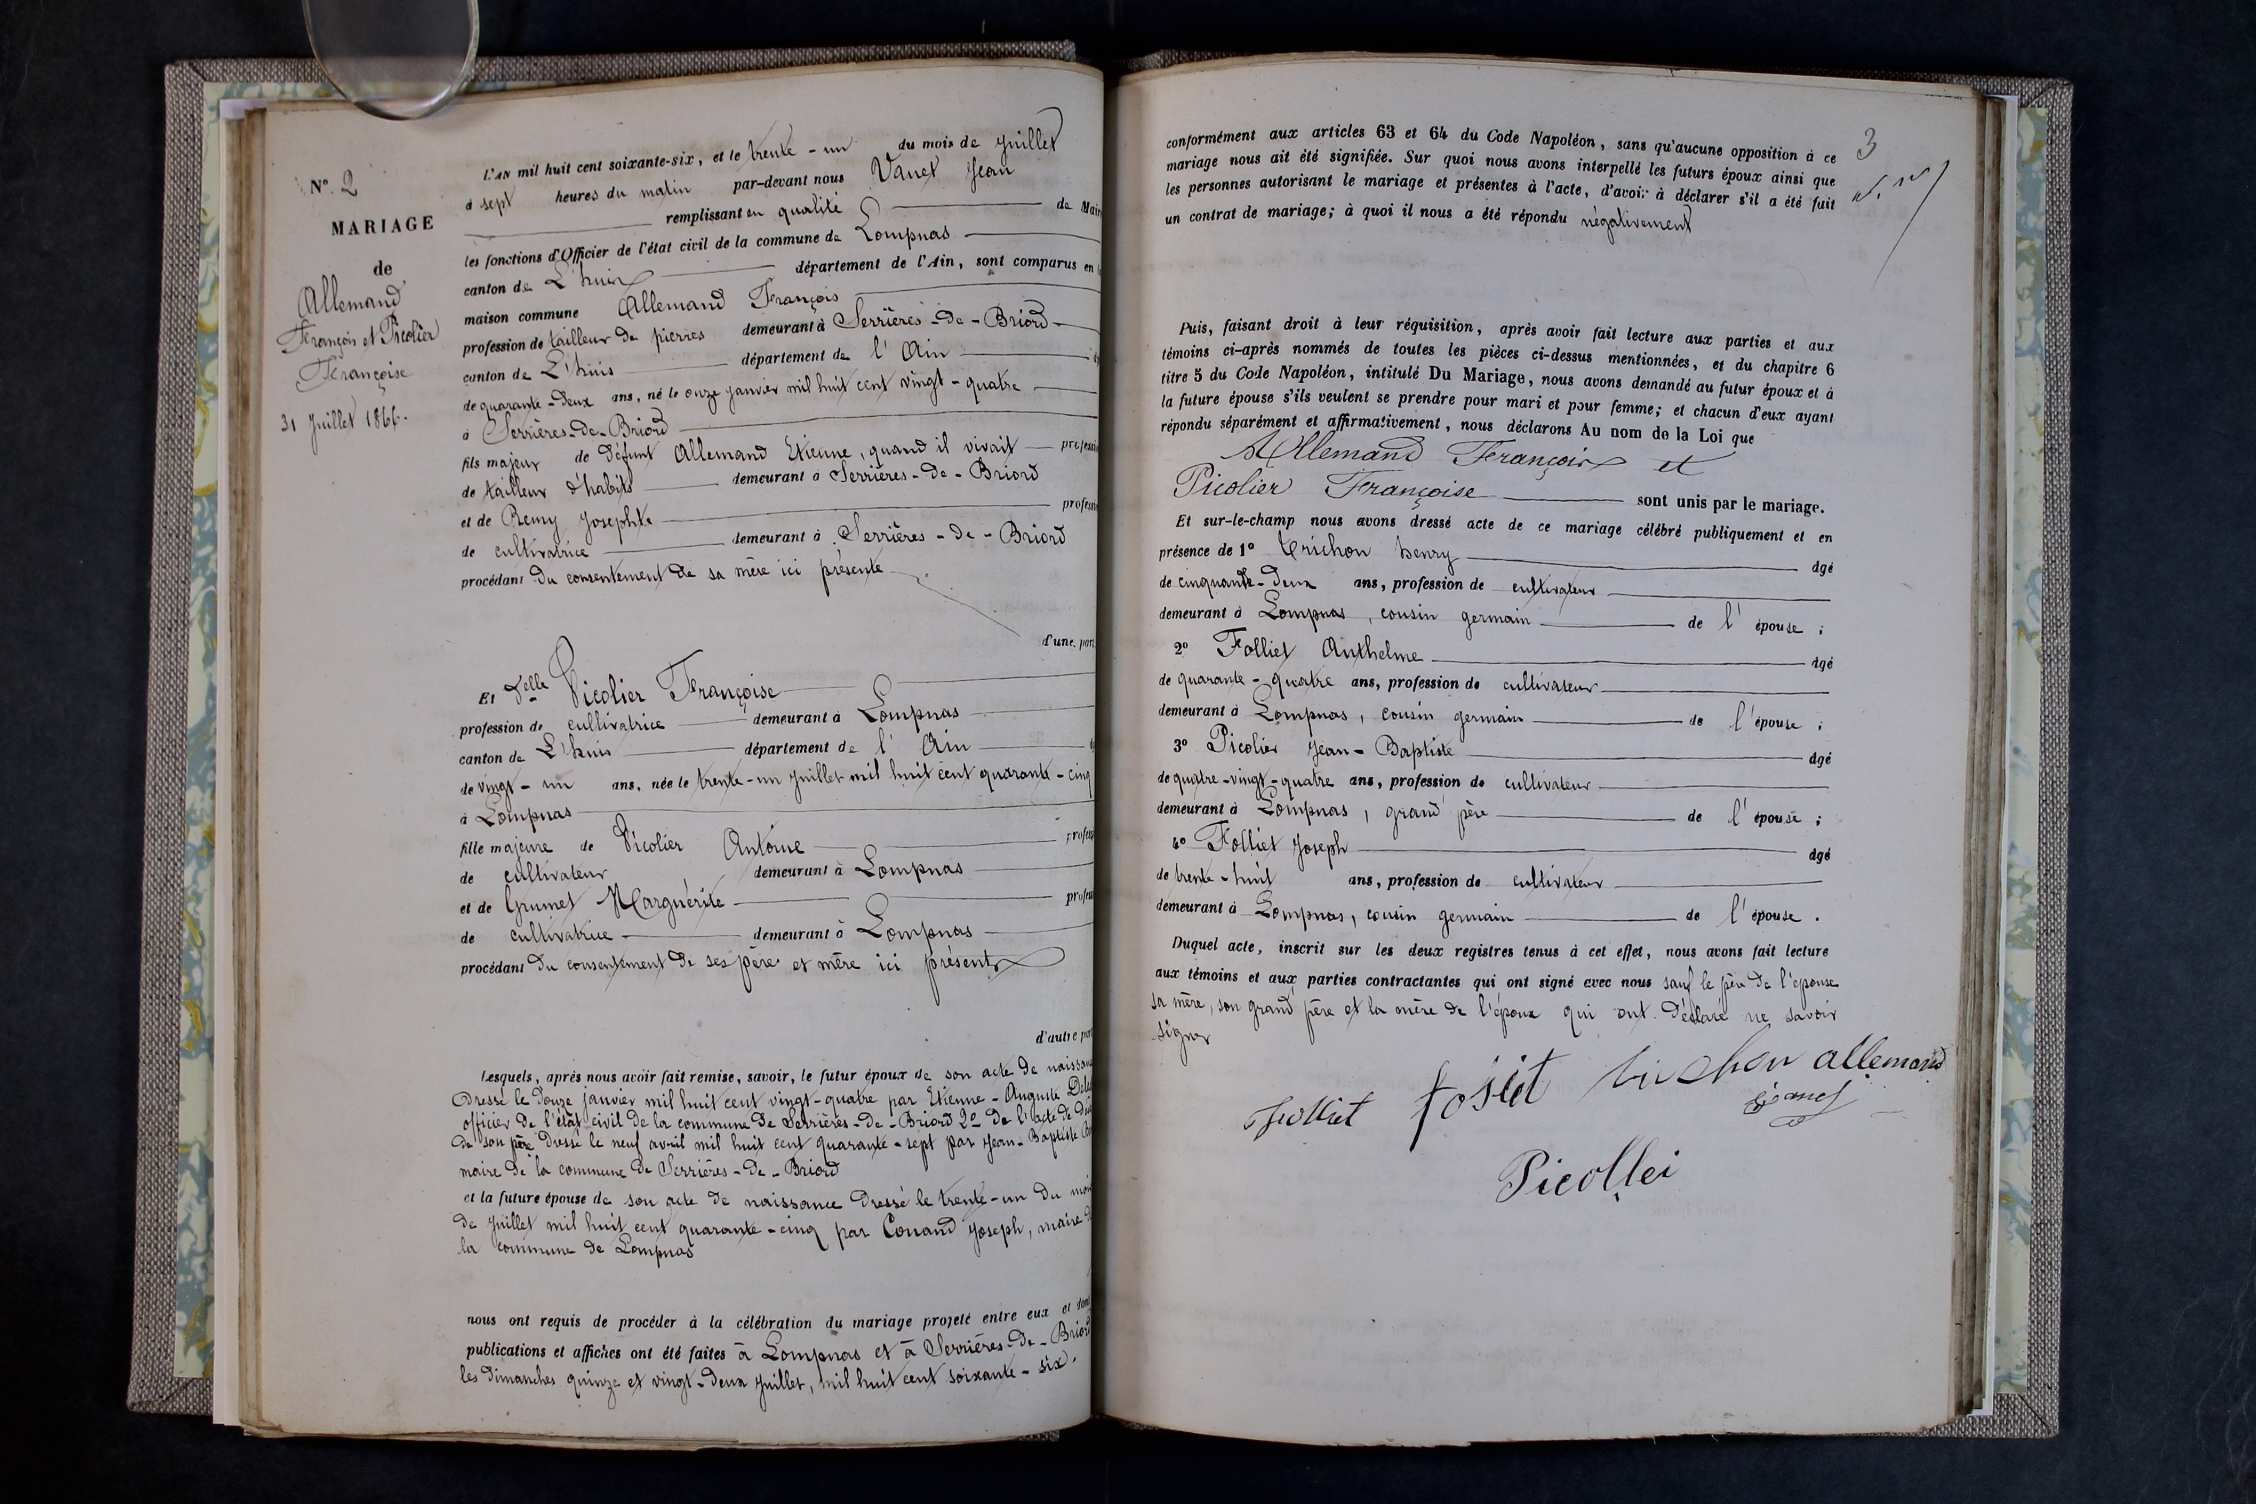 N°. 2
MARIAGE
de
Allemand
François et Picolier
Françoise
31 Juillet 1866.
L'AN mil huit cent soixante-six, et le trente-un du mois de Juillet
à sept heures du matin par-devant nous Vanet Jean
remplissant en qualité de Mair
les fonctions d'Officier de l'état civil de la commune de Lompnas
canton de L'huis département de l'Ain, sont comparus en l
maison commune Allemand François
profession de tailleur de pierres demeurant à Serrières-de-Briord
canton de L'huis département de l'Ain
de quarante-deux ans, né le onze janvier mil huit cent vingt-quatre
à Serrières-de-Briord
fils majeur de défunt Allemand Etienne, quand il vivait professi
de tailleur d'habits demeurant à Serrières-de-Briord
et de Remy Josephte profess
de cultivatrice demeurant à Serrières-de-Briord
procédant du consentement de sa mère ici présente
d'une part
Et Delle Picolier Françoise
profession de cultivatrice demeurant à Lompnas
canton de L'huis département de l'Ain
de vingt-un ans, née le trente-un Juillet mil huit cent quarante-cinq
à Lompnas
fille majeure de Picolier Antoine profess
de cultivateur demeurant à Lompnas
et de Grumet Marguérite profess
de cultivatrice demeurant à Lompnas
procédant du consentement de ses père et mère ici présents
d'autre part
Lesquels, après nous avoir fait remise, savoir, le futur époux de son acte de naissanc
dressé le douze janvier mil huit cent vingt-quatre par Etienne-Auguste
officier de l'état civil de la commune de Serrières-de-Briord 2° de l'acte de
de son père dressé le neuf avril mil huit cent quarante-sept par Jean-Baptiste
maire de la commune de Serrières-de-Briord
et la future épouse de son acte de naissance dressé le trente-un du moi
de Juillet mil huit cent quarante-cinq par Conand Joseph, maire d
la commune de Lompnas
nous ont requis de procéder à la célébration du mariage projeté entre eux et dont
publications et affiches ont été faites à Lompnas et à Serrières-de-Briord
les dimanches quinze et vingt-deux Juillet, mil huit cent soixante-six.
3
conformément aux articles 63 et 64 du Code Napoléon, sans qu'aucune opposition à ce
mariage nous ait été signifiée. Sur quoi nous avons interpellé les futurs époux ainsi que
les personnes autorisant le mariage et présentes à l'acte, d'avoir à déclarer s'il a été fait
un contrat de mariage; à quoi il nous a été répondu négativement
Puis, faisant droit à leur réquisition, après avoir fait lecture aux parties et aux
témoins ci-après nommés de toutes les pièces ci-dessus mentionnées, et du chapitre 6
titre 5 du Code Napoléon, intitulé Du Mariage, nous avons demandé au futur époux et à
la future épouse s'ils veulent se prendre pour mari et pour femme; et chacun d'eux ayant
répondu séparément et affirmativement, nous déclarons Au nom de la Loi que
Allemand François et
Picolier Françoise sont unis par le mariage.
Et sur-le-champ nous avons dressé acte de ce mariage célébré publiquement et en
présence de 1° Trichon henry âgé
de cinquante-deux ans, profession de cultivateur
demeurant à Lompnas, cousin germain de l'épouse;
2° Folliet Anthelme âgé
de quarante-quatre ans, profession de cultivateur
demeurant à Lompnas, cousin germain de l'épouse;
3° Picolier Jean-Baptiste âgé
de quatre-vingt-quatre ans, profession de cultivateur
demeurant à Lompnas, grand père de l'épouse;
4° Folliet Joseph âgé
de trente-huit ans, profession de cultivateur
demeurant à Lompnas, cousin germain de l'épouse.
Duquel acte, inscrit sur les deux registres tenus à cet effet, nous avons fait lecture
aux témoins et aux parties contractantes qui ont signé avec nous sauf le père de l'épouse
sa mère, son grand père et la mère de l'époux qui ont déclaré ne savoir
signer
folliet trichon allemand
Picollei